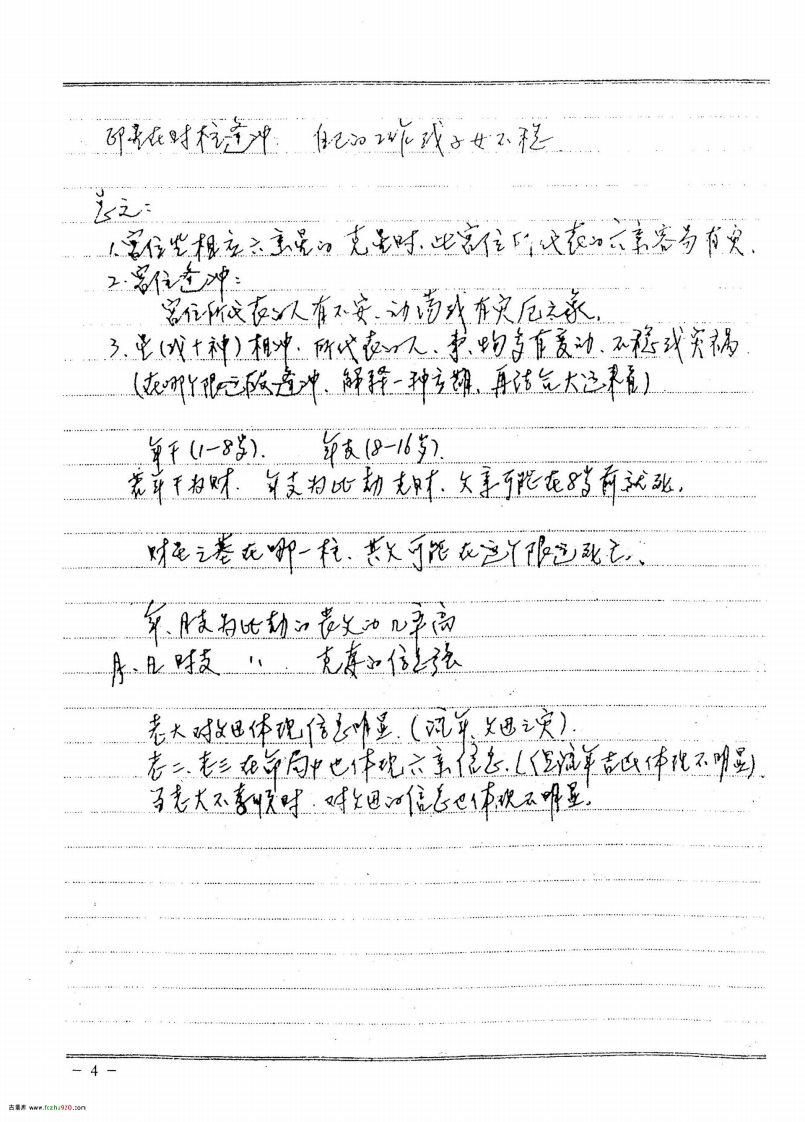 印星在时柱逢冲 自己的工作或子女不稳
总之:
1.宫位坐相应六亲星的克星时.此宫位所代表的六亲容易有灾.
2.宫位逢冲:
宫位所代表的人有不安、动荡或有灾厄之象.
3.星(或十神)相冲.所代表的人、事、物多有变动.不稳或灾祸
(在哪个限运段逢冲.解释一种六亲.再结合大运来看)
年干(1-8岁). 年支(8-16岁).
若年干为财.年支为比劫克财.父亲可能在8岁前就死.
财星之墓在哪一柱.其父可能在这个限运死亡.
年、月支为比劫的丧父的几率高
月、日.时支 〃 . 克妻的信息强
老大对父母体现信息明显.(流年.父母之灾).
老二、老三在命局中也体现六亲信息.(但流年吉凶体现不明显).
当老大不孝顺时.对父母的信息也体现不明显.
- 4 -
古籍库 www.fczhu920.com